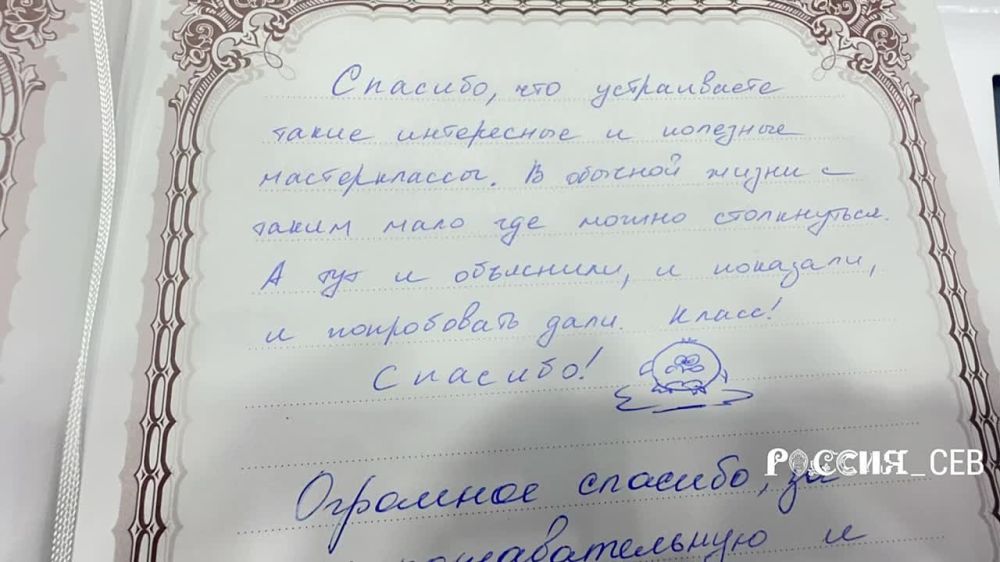 Спасибо, что устраиваете
такие интересные и полезные
мастерклассы. В обычной жизни с
таким мало где можно столкнуться.
А тут и объяснили, и показали,
и попробовать дали. Класс!
Спасибо!
Огромное спасибо, за
РОССИЯ_СЕВ
познавательную и